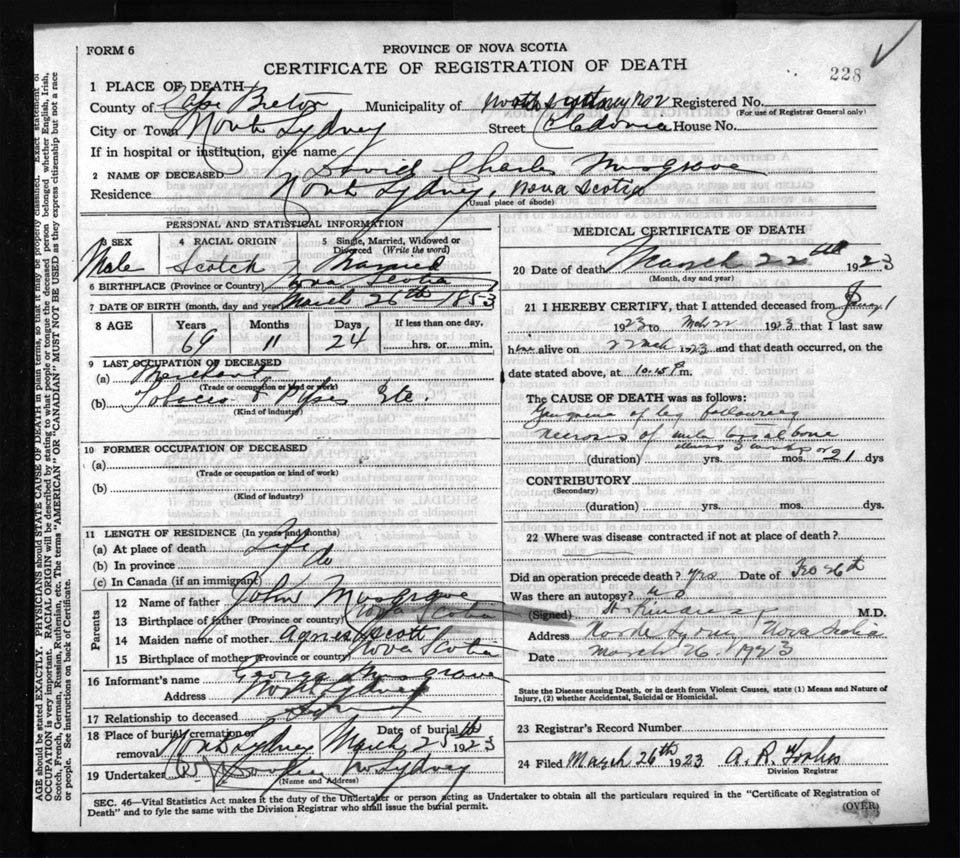 FORM 6
PROVINCE OF NOVA SCOTIA
CERTIFICATE OF REGISTRATION OF DEATH
228
1 PLACE OF DEATH
County of Cape Breton Municipality of North Sydney Registered No.
(For use of Registrar General only)
City or Town North Sydney Street Caledonia House No.
If in hospital or institution, give name
2 NAME OF DECEASED David Charles Musgrave
Residence North Sydney, Nova Scotia
(Usual place of abode)
PERSONAL AND STATISTICAL INFORMATION
3 SEX 4 RACIAL ORIGIN 5 Single, Married, Widowed or Divorced (Write the word)
Male Scotch Married
6 BIRTHPLACE (Province or Country) Nova Scotia
7 DATE OF BIRTH (month, day and year) March 26th 1853
8 AGE Years Months Days If less than one day,
69 11 24 hrs. or min.
9 LAST OCCUPATION OF DECEASED
(a) Merchant
(Trade or occupation or kind or work)
(b) Tobacco & Pipes Etc.
(Kind of industry)
10 FORMER OCCUPATION OF DECEASED
(a)
(Trade or occupation or kind of work)
(b)
(Kind of industry)
11 LENGTH OF RESIDENCE (In years and months)
(a) At place of death Life
(b) In province do
(c) In Canada (if an immigrant)
Parents
12 Name of father John Musgrave
13 Birthplace of father (Province or country) Nova Scotia
14 Maiden name of mother Agnes Scott
15 Birthplace of mother (Province or country) Nova Scotia
16 Informant's name George Musgrave
Address North Sydney
17 Relationship to deceased
18 Place of burial, cremation or removal North Sydney Date of burial March 25th 1923
19 Undertaker N Sydney
(Name and Address)
MEDICAL CERTIFICATE OF DEATH
20 Date of death March 22th 1923
(Month, day and year)
21 I HEREBY CERTIFY, that I attended deceased from January 1
1923 to Mch 22 1923 that I last saw
him alive on 22 Mch 1923 and that death occurred, on the
date stated above, at 10.15 P m.
The CAUSE OF DEATH was as follows:
Gangrene of leg following
necrosis of bone
(duration) yrs. mos. 21 dys
CONTRIBUTORY
(Secondary)
(duration) yrs. mos. dys.
22 Where was disease contracted if not at place of death?
Did an operation precede death? Yes Date of
Was there an autopsy? no
(Signed) M.D.
Address North Sydney Nova Scotia
Date March 26 1923
State the Disease causing Death, or in death from Violent Causes, state (1) Means and Nature of Injury, (2) whether Accidental, Suicidal or Homicidal.
23 Registrar's Record Number
24 Filed March 26th 1923 A. R. Forbes
Division Registrar
SEC. 46—Vital Statistics Act makes it the duty of the Undertaker or person acting as Undertaker to obtain all the particulars required in the "Certificate of Registration of
Death" and to fyle the same with the Division Registrar who shall issue the burial permit.
(OVER)
AGE should be stated EXACTLY. PHYSICIANS should STATE CAUSE OF DEATH in plain terms, so that it may be properly classified. Exact statement of
OCCUPATION is very important. RACIAL ORIGIN will be described by stating to what people or tongue the deceased person belonged whether English, Irish,
Scotch, French, German, Russian, Ruthenian, etc. The terms "AMERICAN" OR "CANADIAN" MUST NOT BE USED as they express citizenship but not a race
or people. See instructions on back of Certificate.